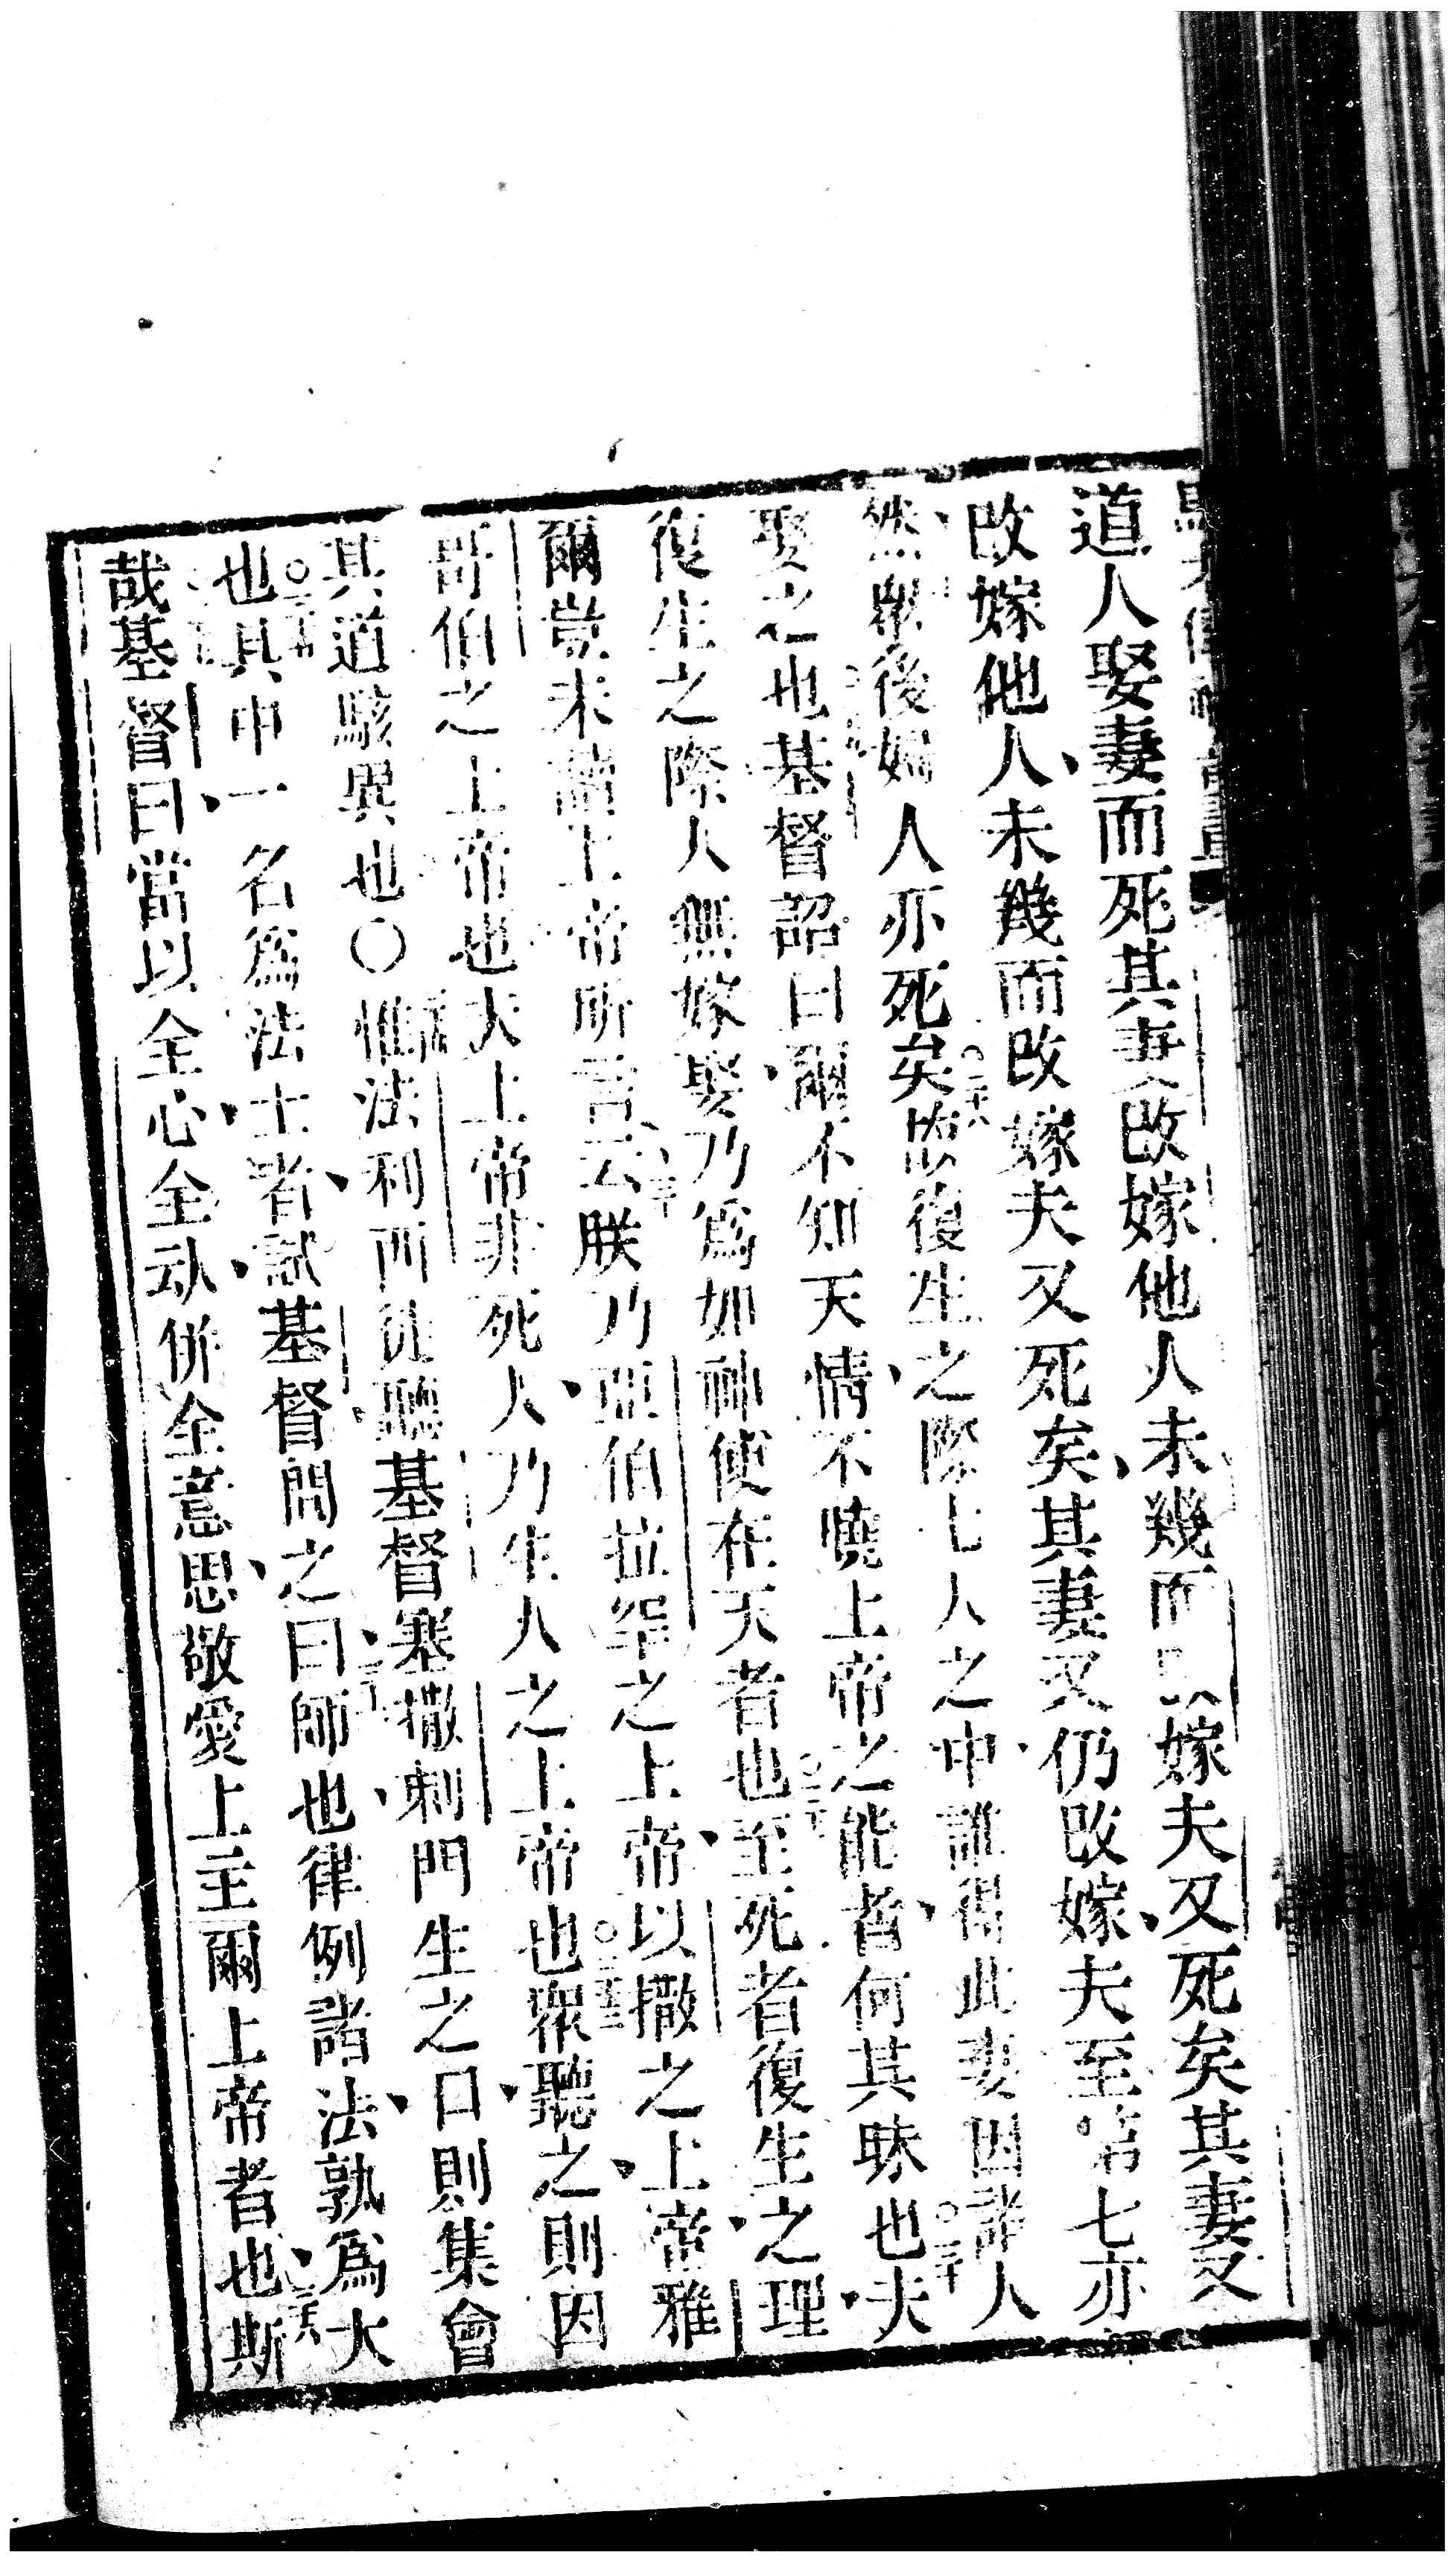 道人娶妻而死其妻改嫁他人未幾而改嫁夫又死矣其妻又
改嫁他人未幾而改嫁夫又死矣其妻又仍改嫁夫至第七亦
然衆後婦人亦死矣○二十八故復生之際七人之中誰得此妻因諸人
娶之也基督詔曰爾不知天情不曉上帝之能者何其昧也○三十夫
復生之際人無嫁娶乃爲如神使在天者也○三十一至死者復生之理
爾豈未讀上帝所言云朕乃亞伯拉罕之上帝以撒之上帝雅
哥伯之上帝也夫上帝非死人乃生人之上帝也○三十三衆聽之則因
其道駭異也〇惟法利西徒聽基督塞撒刺門生之口則集會
也○三十五其中一名爲法士者試基督問之曰師也律例諸法孰爲大
哉基督曰當以全心全动併全意思敬愛上主爾上帝者也○三十八斯